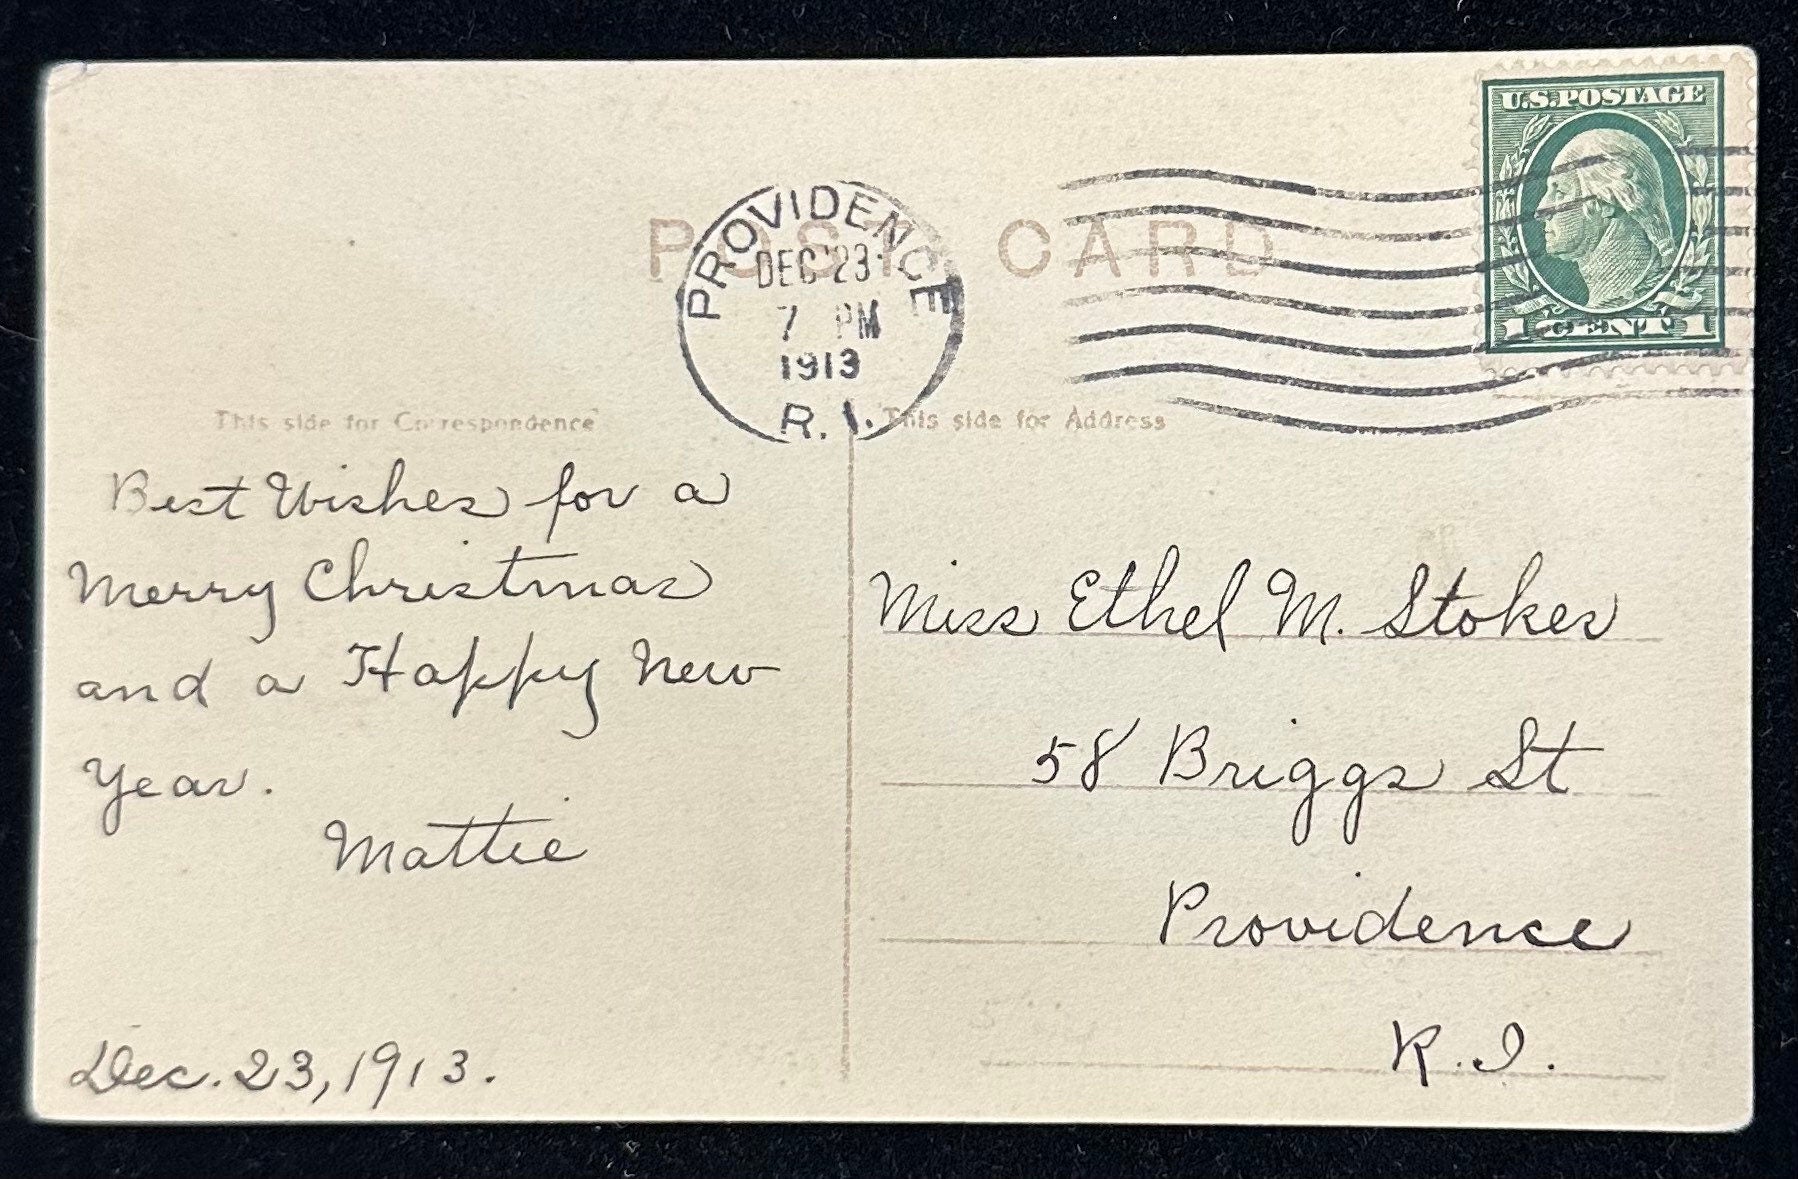 U.S. POSTAGE
1 CENT 1
POST CARD
PROVIDENCE
DEC 23
7 PM
1913
R. I.
This side for Correspondence
This side for Address
Best Wishes for a
Merry Christmas
and a Happy New
Year.
Mattie
Dec. 23, 1913.
Miss Ethel M. Stokes
58 Briggs St
Providence
R.I.